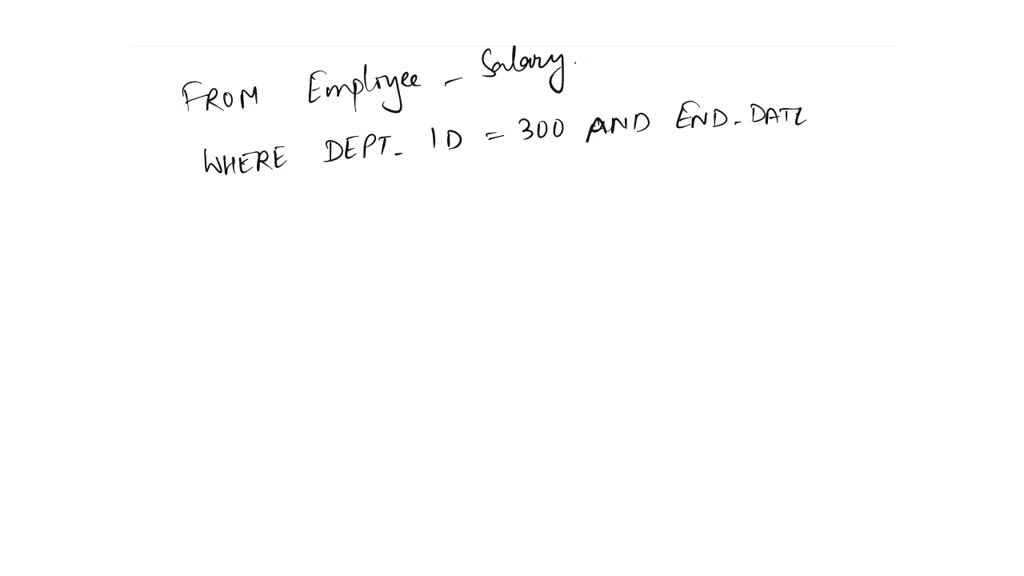 FROM Employee - Salary.
WHERE DEPT_ ID = 300 AND END_DATE